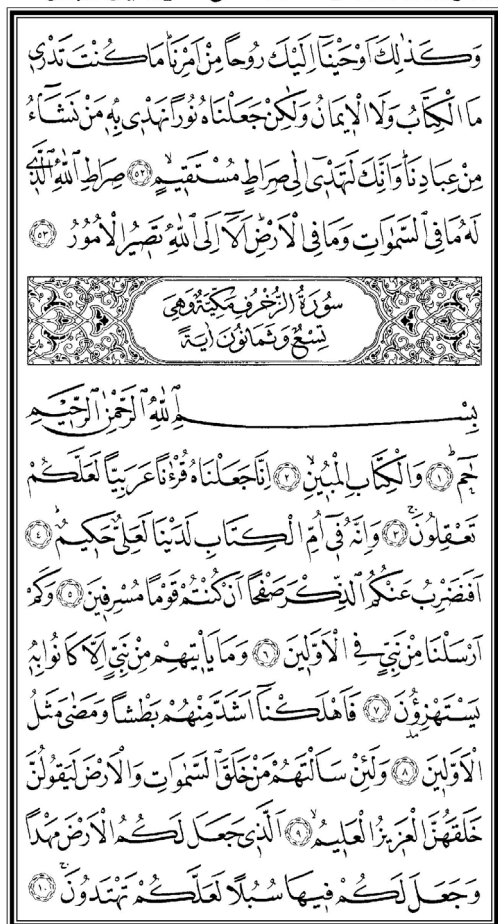 وَكَذٰلِكَ اَوْحَيْنَٓا اِلَيْكَ رُوحاً مِنْ اَمْرِنَاۜ مَا كُنْتَ تَدْر۪ي
مَا الْكِتَابُ وَلَا الْا۪يمَانُ وَلٰكِنْ جَعَلْنَاهُ نُوراً نَهْد۪ي بِه۪ مَنْ نَشَٓاءُ
مِنْ عِبَادِنَاۜ وَاِنَّكَ لَتَهْد۪ٓي اِلٰى صِرَاطٍ مُسْتَق۪يمٍۙ ﴿٥٢﴾ صِرَاطِ اللّٰهِ الَّذ۪ي
لَهُ مَا فِي السَّمٰوَاتِ وَمَا فِي الْاَرْضِۜ اَلَٓا اِلَى اللّٰهِ تَص۪يرُ الْاُمُورُ ﴿٥٣﴾
سُورَةُ الزُّخْرُفِ مَكِّيَّةٌ وَهِيَ
تِسْعٌ وَثَمَانُونَ اٰيَةً
بِسْمِ اللّٰهِ الرَّحْمٰنِ الرَّح۪يمِ
حٰمٓۜ ﴿١﴾ وَالْكِتَابِ الْمُب۪ينِۙ ﴿٢﴾ اِنَّا جَعَلْنَاهُ قُرْءٰناً عَرَبِياًّ لَعَلَّكُمْ
تَعْقِلُونَۚ ﴿٣﴾ وَاِنَّهُ ف۪ٓي اُمِّ الْكِتَابِ لَدَيْنَا لَعَلِيٌّ حَك۪يمٌۜ ﴿٤﴾
اَفَنَضْرِبُ عَنْكُمُ الذِّكْرَ صَفْحاً اَنْ كُنْتُمْ قَوْماً مُسْرِف۪ينَ ﴿٥﴾ وَكَمْ
اَرْسَلْنَا مِنْ نَبِيٍّ فِي الْاَوَّل۪ينَ ﴿٦﴾ وَمَا يَأْت۪يهِمْ مِنْ نَبِيٍّ اِلَّا كَانُوا بِه۪
يَسْتَهْزِؤُ۫نَ ﴿٧﴾ فَاَهْلَكْنَٓا اَشَدَّ مِنْهُمْ بَطْشاً وَمَضٰى مَثَلُ
الْاَوَّل۪ينَ ﴿٨﴾ وَلَئِنْ سَاَلْتَهُمْ مَنْ خَلَقَ السَّمٰوَاتِ وَالْاَرْضَ لَيَقُولُنَّ
خَلَقَهُنَّ الْعَز۪يزُ الْعَل۪يمُۙ ﴿٩﴾ اَلَّذ۪ي جَعَلَ لَكُمُ الْاَرْضَ مَهْداً
وَجَعَلَ لَكُمْ ف۪يهَا سُبُلاً لَعَلَّكُمْ تَهْتَدُونَۚ ﴿١٠﴾